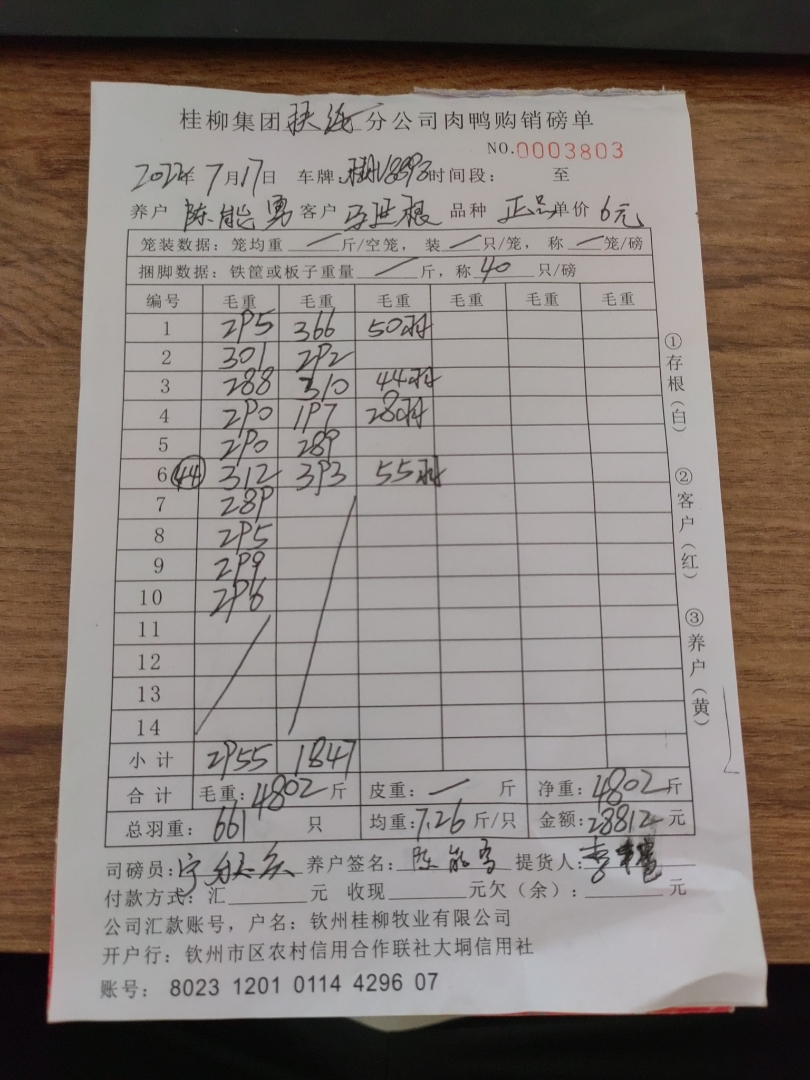 桂柳集团扶绥分公司肉鸭购销磅单
NO.0003803
2022年7月17日 车牌: 时间段: 至
养户 陈能勇 客户 马廷根 品种 正品 单价 6元
笼装数据: 笼均重 / 斤/空笼, 装 / 只/笼, 称 / 笼/磅
捆脚数据: 铁筐或板子重量 / 斤, 称 40 只/磅
编号 毛重 毛重 毛重 毛重 毛重 毛重
1 295 366 50羽
2 301 292
3 288 310 44羽
4 290 197 28羽
5 290 289
6 (44) 312 393 55羽
7 289
8 295
9 299
10 296
11
12
13
14
小计 2955 1847
合计 毛重: 4802 斤 皮重: / 斤 净重: 4802 斤
总羽重: 661 只 均重: 7.26 斤/只 金额: 28812 元
司磅员: 养户签名: 陈能勇 提货人: 李
付款方式: 汇 元 收现 元欠(余): 元
公司汇款账号, 户名: 钦州桂柳牧业有限公司
开户行: 钦州市区农村信用合作联社大垌信用社
账号: 8023 1201 0114 4296 07
①存根(白)
②客户(红)
③养户(黄)